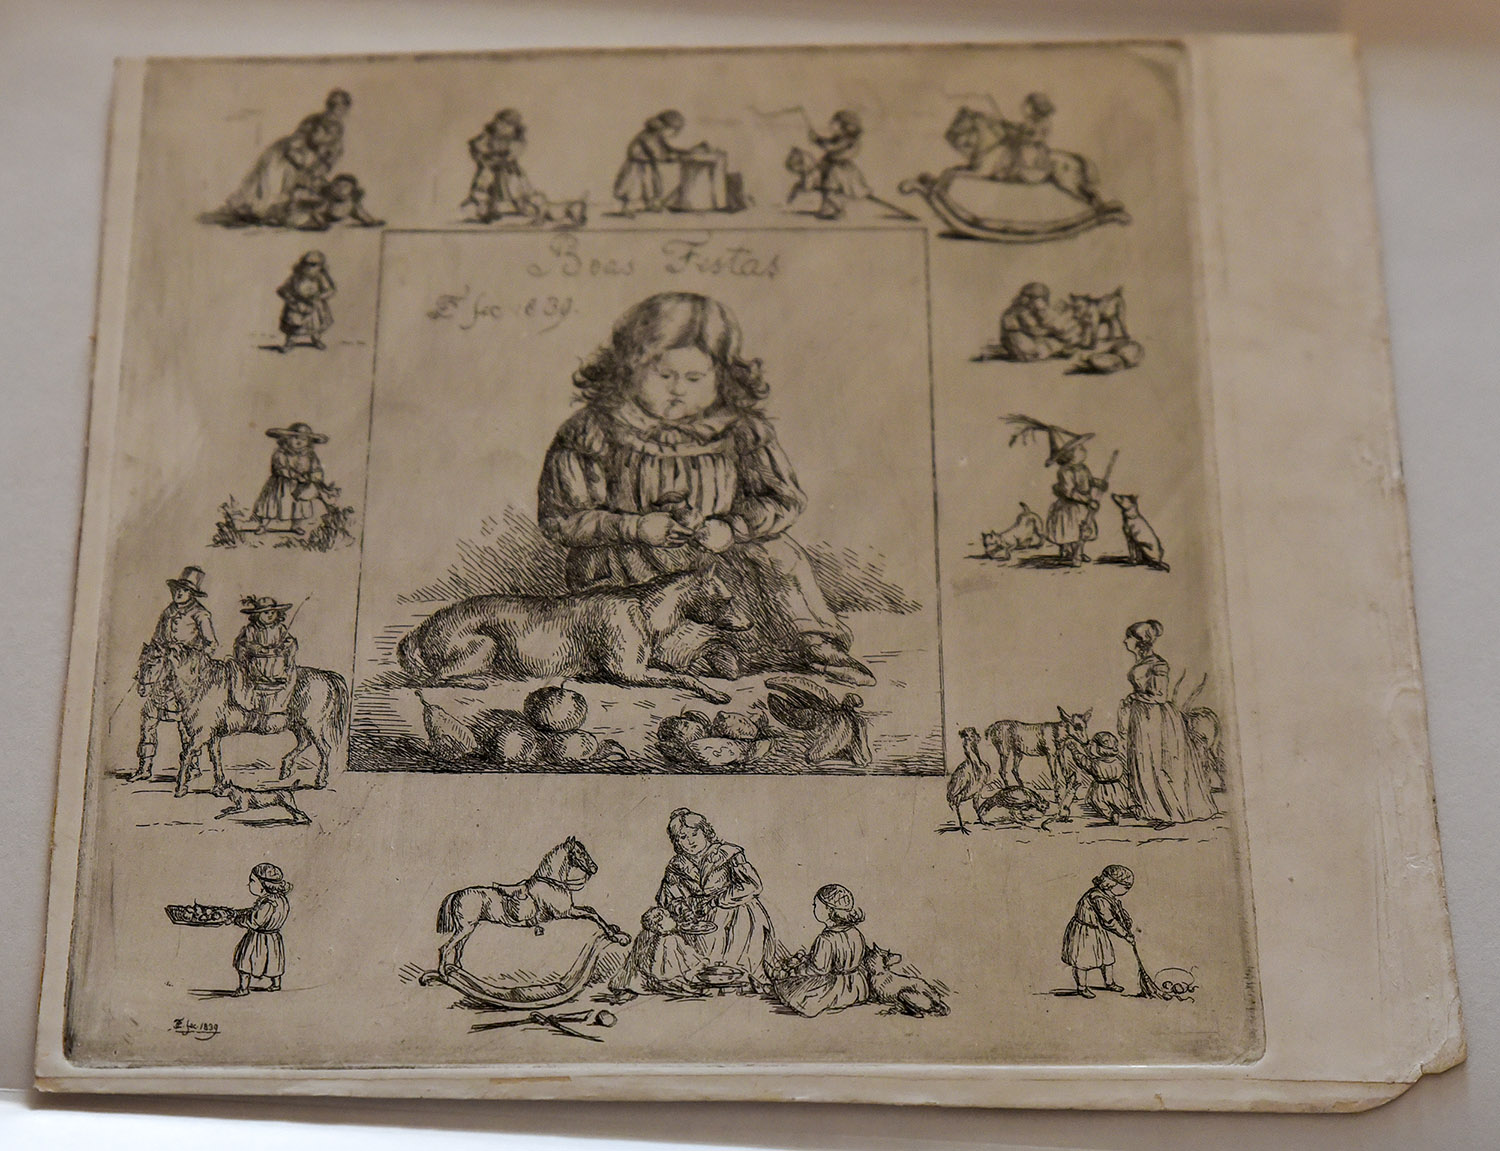 Boas Festas
F fec 1839.
F fec. 1839